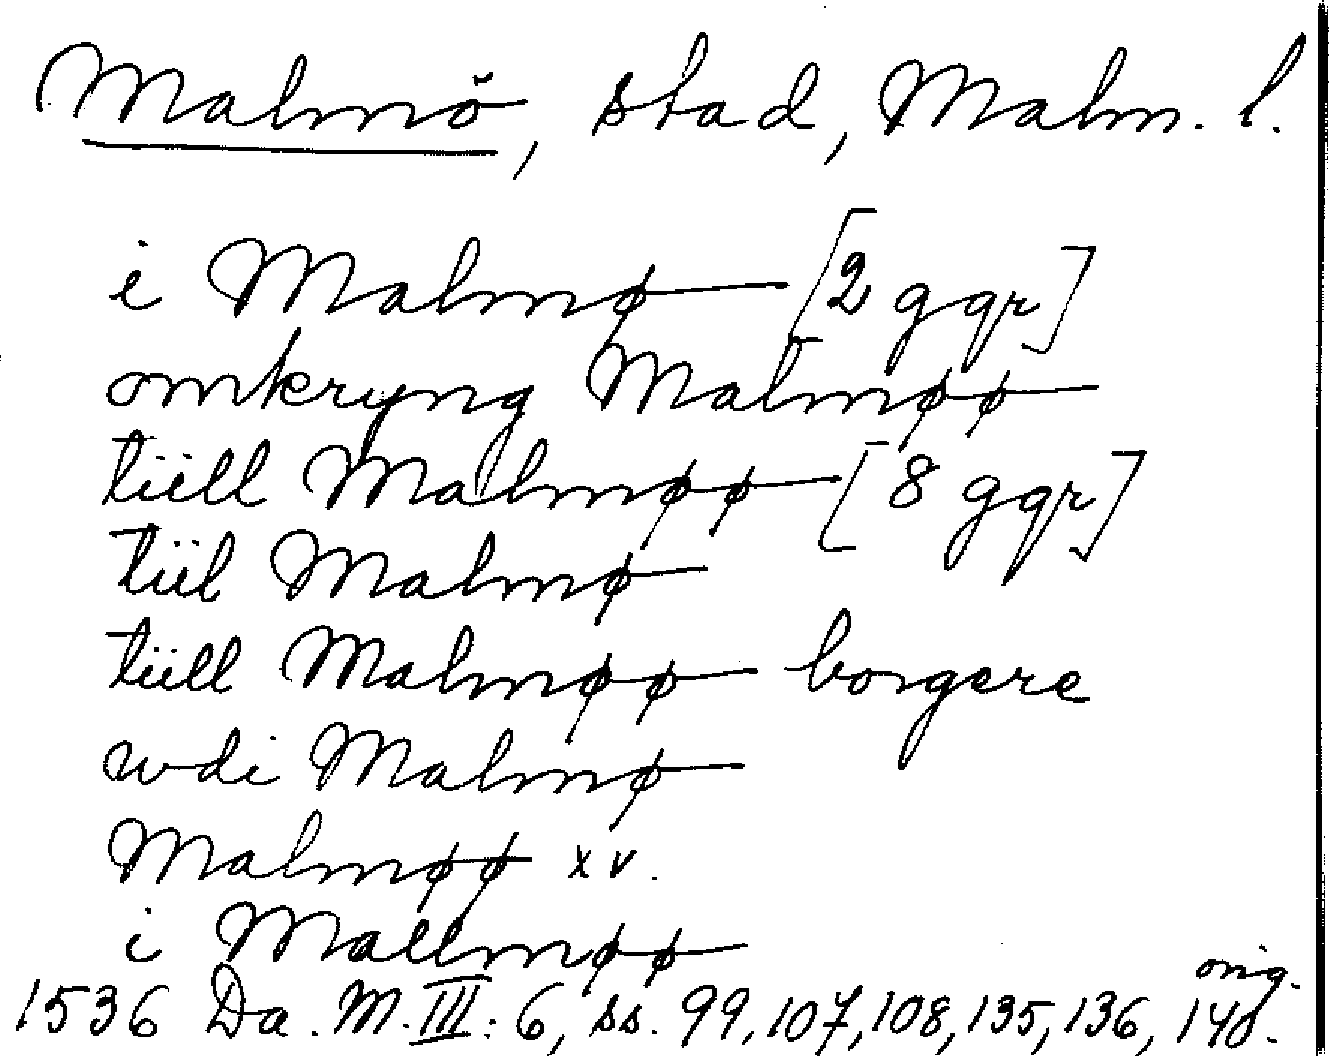 Malmö, stad, Malm. l.
i Malmø [2 ggr]
omkryng Malmøø
tiill Malmøø [8 ggr]
tiil Malmø
tiill Malmøø borgere
wdi Malmø
Malmøø xv.
i Mallmøø
orig.
1536 Da. M. III: 6, ss. 99, 107, 108, 135, 136, 140.